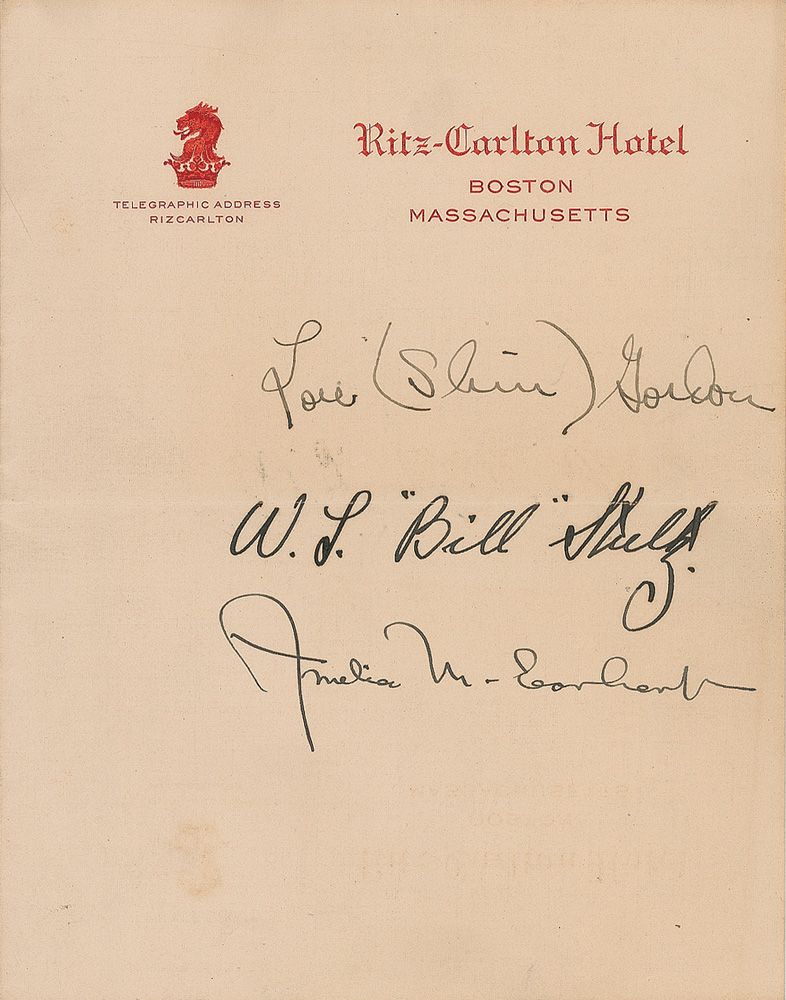 Ritz-Carlton Hotel
BOSTON
MASSACHUSETTS
TELEGRAPHIC ADDRESS
RIZCARLTON
Lou (Slim) Gordon
W. L. "Bill" Stultz.
Amelia M. Earhart